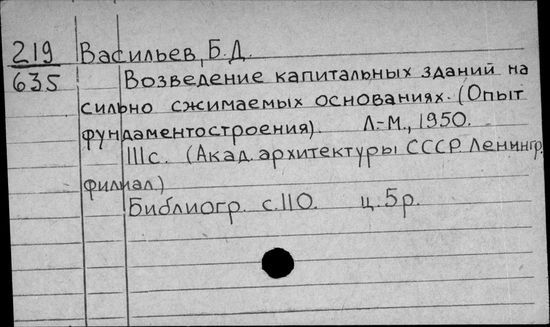 219 Васильев, Б.Д.
635 Возведение капитальных зданий на
сильно сжимаемых основаниях. (Опыт
фундаментостроения). Л.-М., 1950.
111с. (Акад. архитектуры СССР. Ленингр.
филиал.)
Библиогр. с.110. ц. 5р.